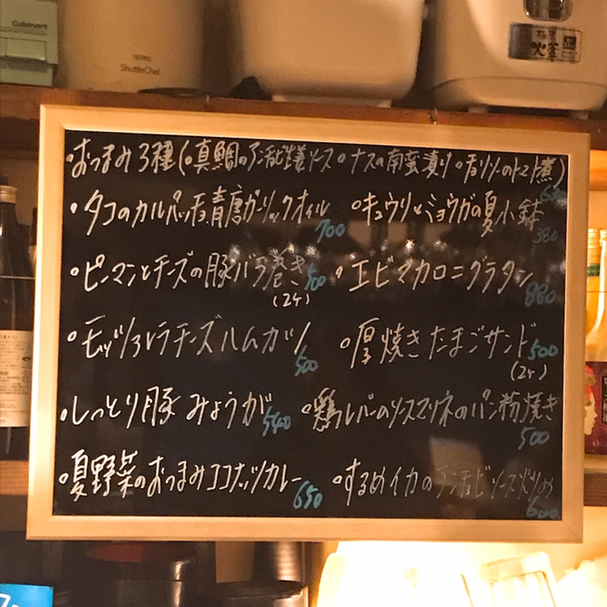 Cuisinart
THERMOS
ShuttleChef
火釜
・おつまみ3種(・真鯛のアンチョビ焼ソース・ナスの南蛮漬け・チョリソーのトマト煮)
・タコのカルパッチョ青唐ガーリックオイル 700 ・キュウリとミョウガの夏小鉢 380
・ピーマンとチーズの豚バラ巻き 500 (2ヶ) ・エビマカロニグラタン 880
・モッツァレラチーズハムカツ 500 ・厚焼きたまごサンド 500 (2ヶ)
・しっとり豚みょうが 540 ・鶏レバーのソースマリネのパン粉焼き 500
・夏野菜のおつまみココナッツカレー 650 ・するめイカのアンチョビソース炒め 600